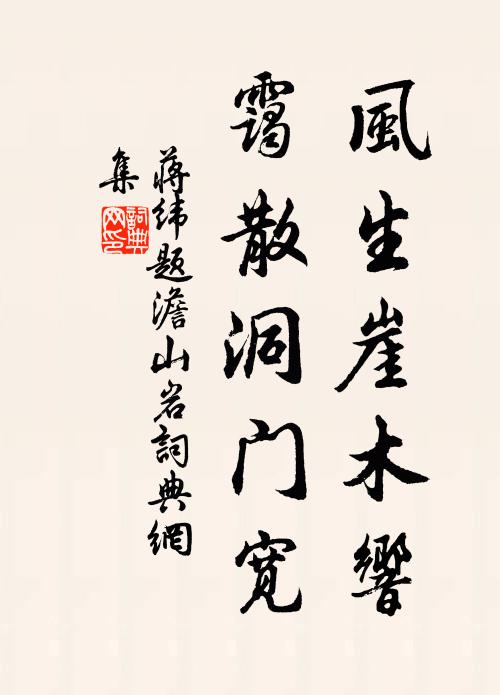 風生崖木響
靄散洞门宽
蒋纬题澹山岩詞典網
集
詞典
网印